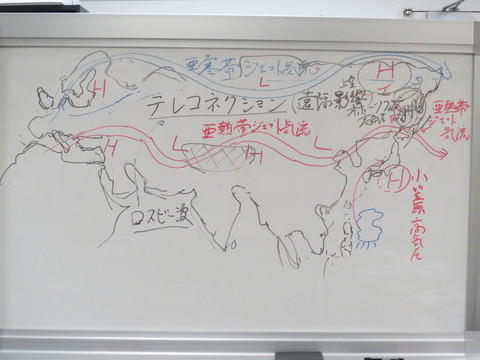 亜寒帯ジェット気流
H
H
L
テレコネクション(遠隔影響
亜熱帯ジェット気流
亜熱帯
ジェット
気流
L
L
H
H
H
小笠原高気圧
ロスビー波